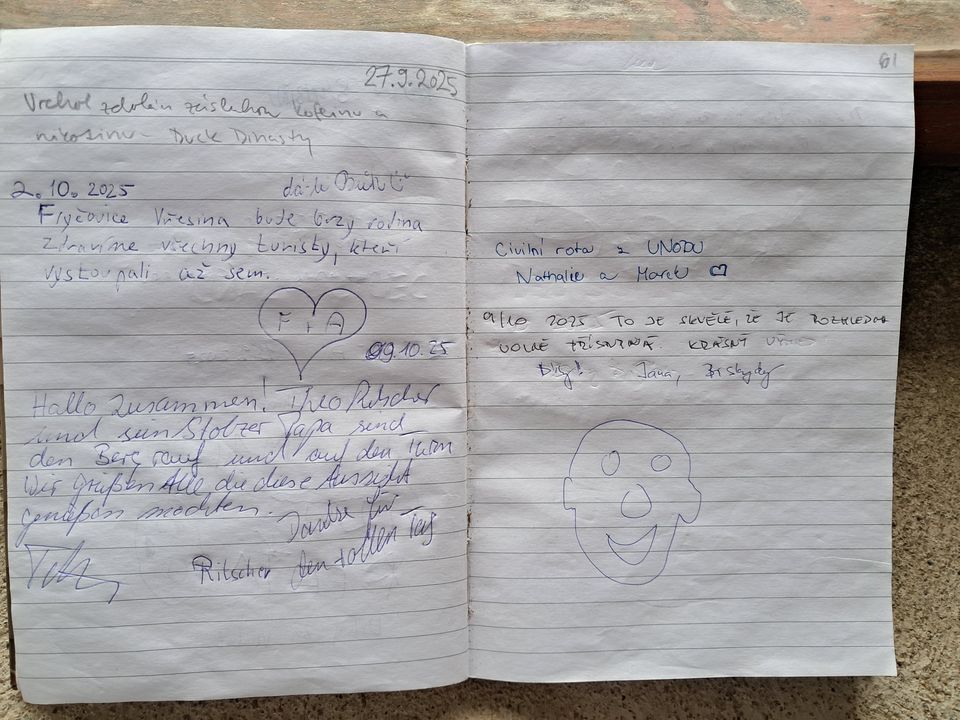 27.9.2025
Vrchol zdolán zásluhou kofeinu a
nikotinu Duck Dinasty
2.10.2025
Fryčovice Vřesina bude brzy rodina
Zdravíme všechny turisty, kteří
vystoupali až sem.
F + A
09.10.25
Hallo Zusammen! Theo Ritscher
und sein Stolzer Papa sind
den Berg rauf und auf den Turm
Wir grüßen Alle, die diese Aussicht
genießen möchten.
Danke für
Ritscher den tollen Tag
61
Civilní rota z UNODU
Nathalie a Marek
9/10 2025 TO JE SKVĚLÉ, ŽE JE ROZHLEDNA
VOLNĚ PŘÍSTUPNÁ. KRÁSNÝ
Jana, Beskydy